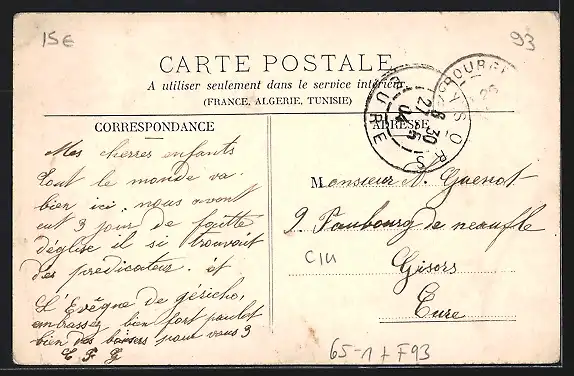 15€
93
CARTE POSTALE
A utiliser seulement dans le service intérieur
(FRANCE, ALGERIE, TUNISIE)
CORRESPONDANCE
ADRESSE
GISORS
EURE
8 30
04
Mes cherres enfants
tout le monde va
bien ici, nous avont
eut 3 jour de
d'église il si trouvait
des predicateur. et
L'Evêque de géricho,
embrassez bien fort paulot
bien des baisers pour vous 3
Monsieur Guenot
9 Faubourg de neaufle
Gisors
Eure
65-1 + F93